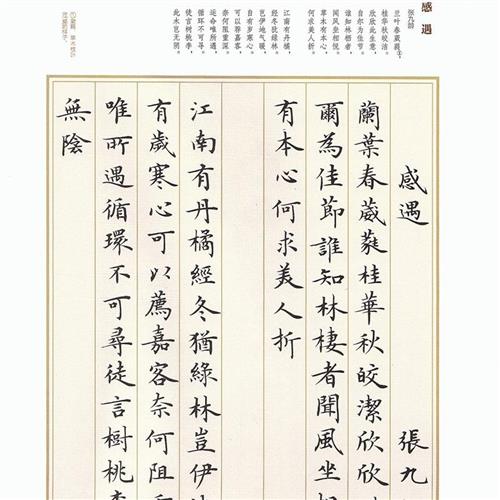 感遇
张九龄
兰叶春葳蕤①，
桂华秋皎洁。
欣欣此生意，
自尔为佳节。
谁知林栖者，
闻风坐相悦。
草木有本心，
何求美人折。
江南有丹橘，
经冬犹绿林。
岂伊地气暖，
自有岁寒心。
可以荐嘉客，
奈何阻重深。
运命唯所遇，
循环不可寻。
徒言树桃李，
此木岂无阴。
①葳蕤：草木枝叶
茂盛的样子。
感遇 張九
蘭葉春葳蕤桂華秋皎潔欣欣
爾為佳節誰知林棲者聞風坐相
有本心何求美人折
江南有丹橘經冬猶綠林豈伊地
有歲寒心可以薦嘉客奈何阻
唯所遇循環不可尋徒言樹桃李
無陰